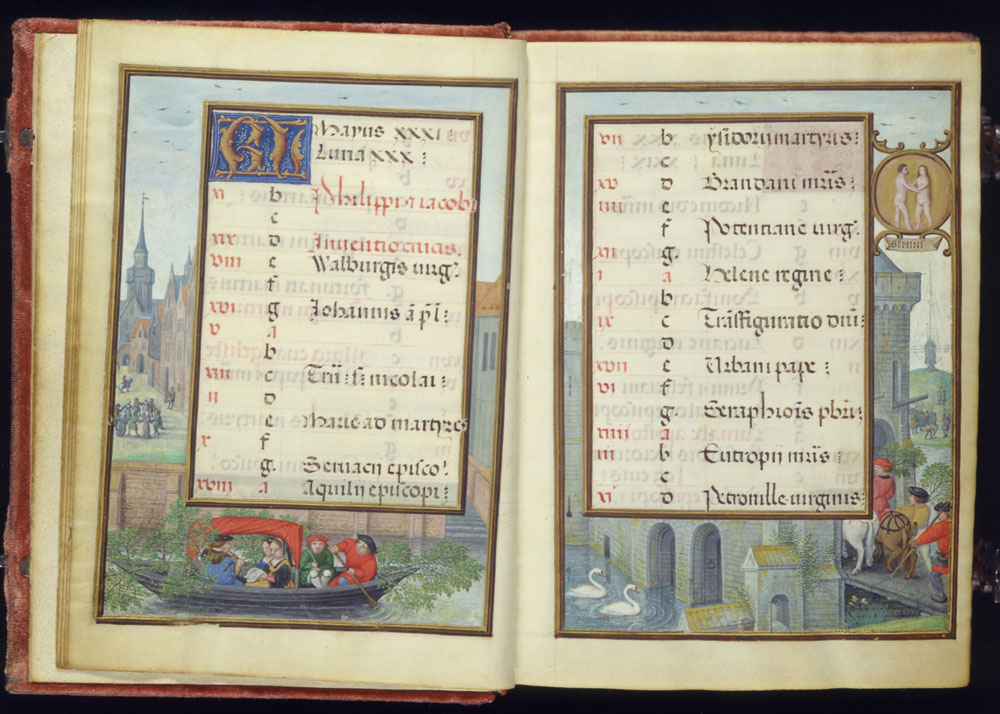 KL Mayus xxxi
Luna xxx :
xi b Philippi ⁊ iacobi
c
xix d Inventio crucis.
viii e Walburgis virg.
f
xvi g Johannis a p l.
v a
b
xiii c Trās f nicolai :
ii d
e Marie ad martyres
x f
g. Servacii episco.
xviii a Aquilii episcopi :
vii b ysidori martyris :
c
xv d Brandani mris :
iiii e
f Potentiane virg.
xii g.
i a Helene regine :
b
ix c Trāsfiguratio dni :
d
xvii e Urbani pape :
vi f
g. Seraphiois pbri :
xiiii a
iii b Eutropii mris :
c
xi d Petronille virginis
GEMINI
6